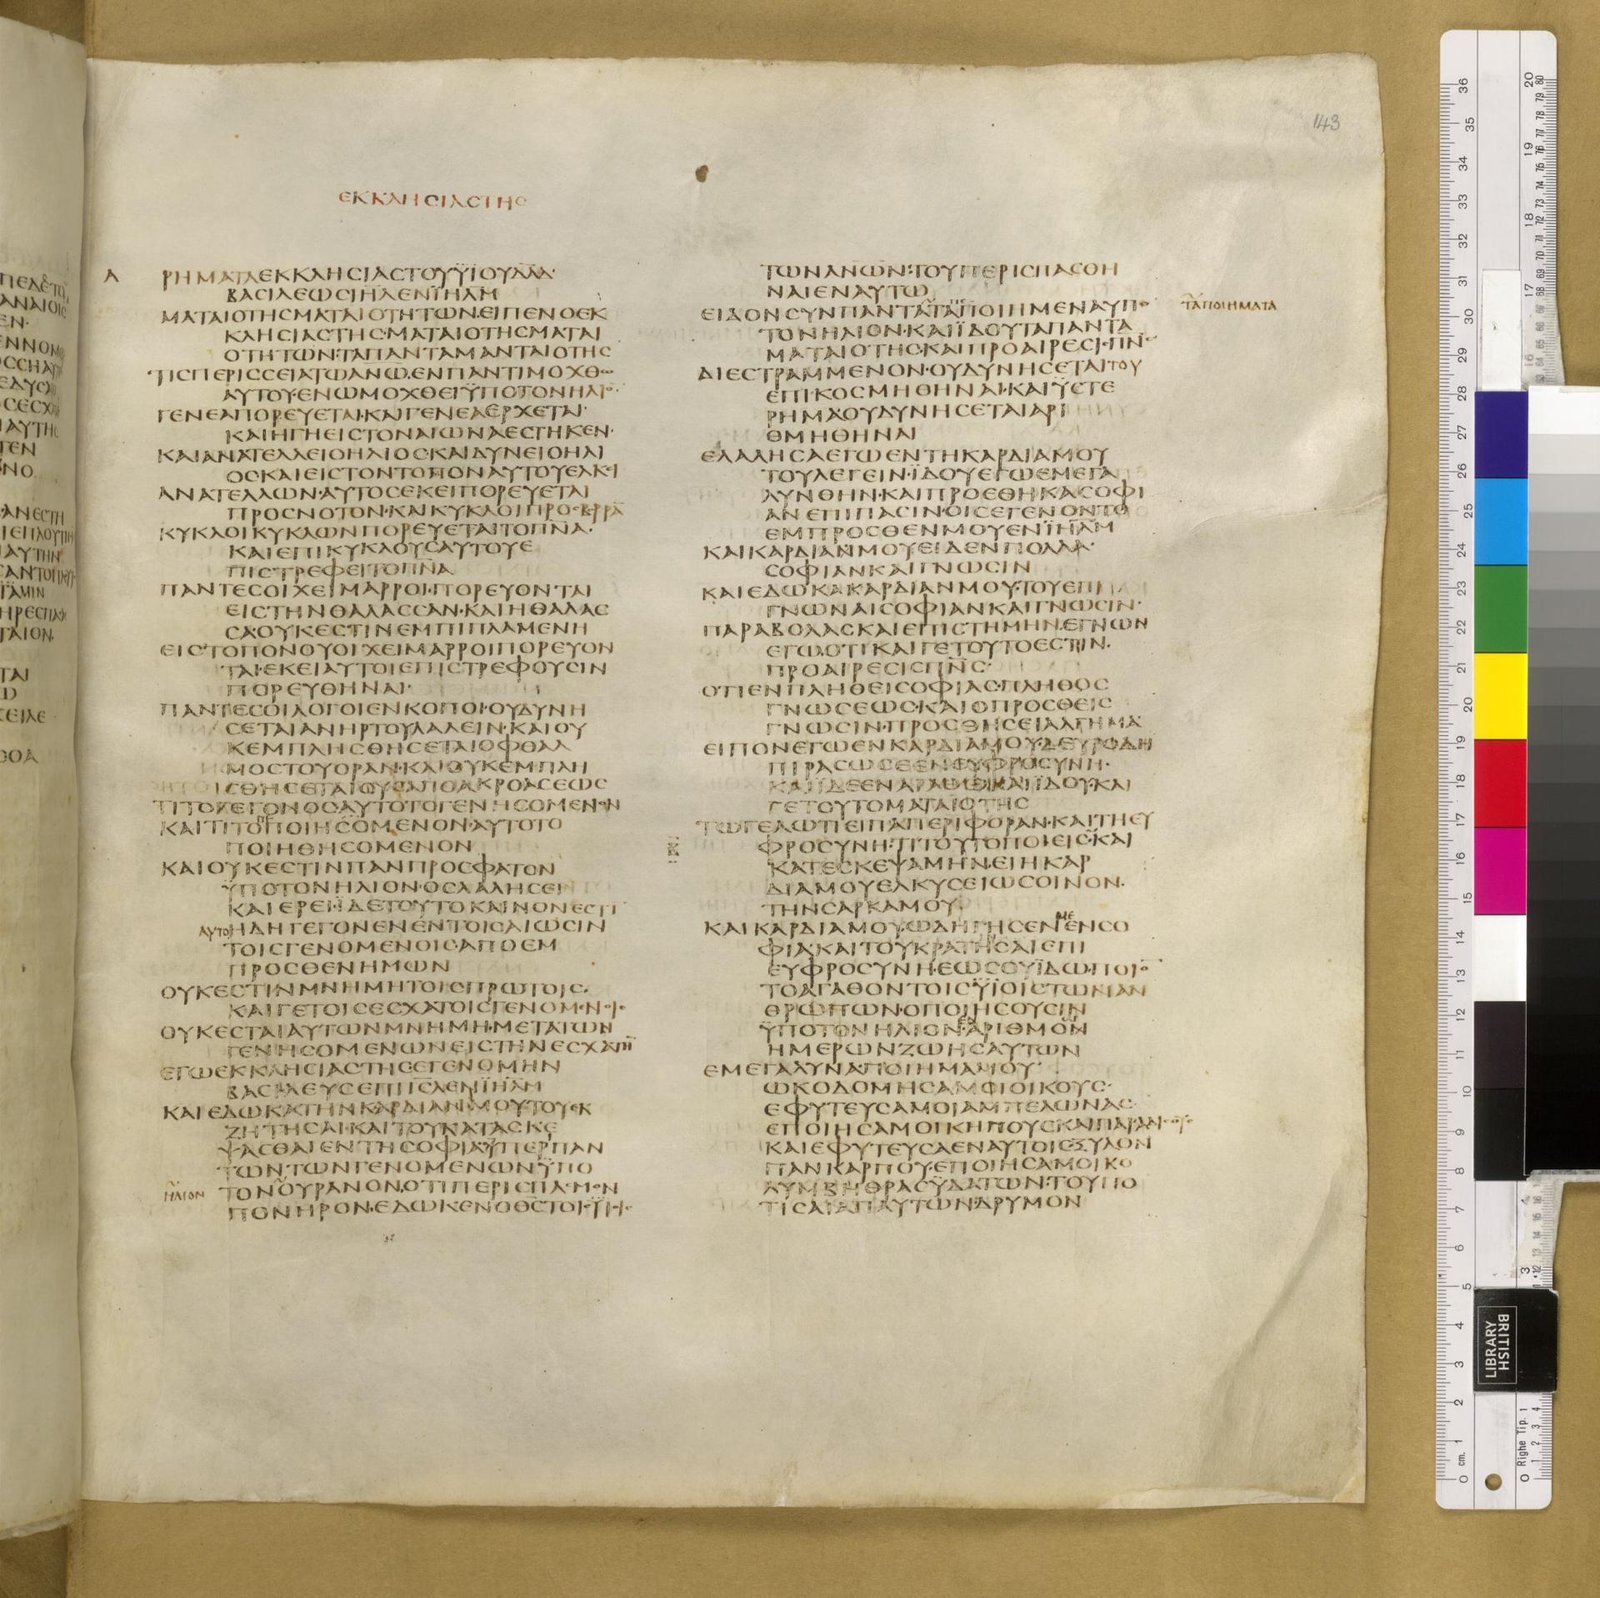 143
ΕΚΚΛΗCΙΑCΤΗC
Α
ΡΗΜΑΤΑΕΚΚΛΗCΙΑCΤΟΥΫΙΟΥΔΑΔ·
ΒΑCΙΛΕΩCΙΗΛΕΝΪΗΛΜ
ΜΑΤΑΙΟΤΗCΜΑΤΑΙΟΤΗΤΩΝ·ΕΙΠΕΝΟΕΚ
ΚΛΗCΙΑCΤΗC·ΜΑΤΑΙΟΤΗCΜΑΤΑΙ
ΟΤΗΤΩΝ·ΤΑΠΑΝΤΑΜΑΝΤΑΙΟΤΗC
ΤΙCΠΕΡΙCCΕΙΑΤΩΑΝΩ·ΕΝΠΑΝΤΙΜΟΧΘΩ
ΑΥΤΟΥ·ΕΝΩΜΟΧΘΕΙΫΠΟΤΟΝΗΛΙΟ·
ΓΕΝΕΑΠΟΡΕΥΕΤΑΙ·ΚΑΙΓΕΝΕΑΕΡΧΕΤΑΙ·
ΚΑΙΗΓΗΕΙCΤΟΝΑΙΩΝΑΕCΤΗΚΕΝ·
ΚΑΙΑΝΑΤΕΛΛΕΙΟΗΛΙΟC·ΚΑΙΔΥΝΕΙΟΗΛΙ
ΟC·ΚΑΙΕΙCΤΟΝΤΟΠΟΝΑΥΤΟΥΕΛΚΙ
ΑΝΑΤΕΛΛΩΝ·ΑΥΤΟCΕΚΕΙΠΟΡΕΥΕΤΑΙ
ΠΡΟCΝΟΤΟΝ·ΚΑΙΚΥΚΛΟΙΠΡΟCΒΟΡΡΑ
ΚΥΚΛΟΙΚΥΚΛΩΝΠΟΡΕΥΕΤΑΙΤΟΠΝΑ·
ΚΑΙΕΠΙΚΥΚΛΟΥCΑΥΤΟΥΕ
ΠΙCΤΡΕΦΕΙΤΟΠΝΑ
ΠΑΝΤΕCΟΙΧΕΙΜΑΡΡΟΙ·ΠΟΡΕΥΟΝΤΑΙ
ΕΙCΤΗΝΘΑΛΑCCΑΝ·ΚΑΙΗΘΑΛΑC
CΑΟΥΚΕCΤΙΝΕΜΠΙΠΛΑΜΕΝΗ
ΕΙCΤΟΠΟΝΟΥΟΙΧΕΙΜΑΡΡΟΙΠΟΡΕΥΟΝ
ΤΑΙ·ΕΚΕΙΑΥΤΟΙΕΠΙCΤΡΕΦΟΥCΙΝ
ΠΟΡΕΥΘΗΝΑΙ·
ΠΑΝΤΕCΟΙΛΟΓΟΙΕΝΚΟΠΟΙ·ΟΥΔΥΝΗ
CΕΤΑΙΑΝΗΡΤΟΥΛΑΛΕΙΝ·ΚΑΙΟΥ
ΚΕΜΠΛΗCΘΗCΕΤΑΙΟΦΘΑΛ
ΜΟCΤΟΥΟΡΑΝ·ΚΑΙΟΥΚΕΜΠΛΗ
CΘΗCΕΤΑΙΟΥCΑΠΟΑΚΡΟΑCΕΩC
ΤΙΤΟΓΕΓΟΝΟCΑΥΤΟΤΟΓΕΝΗCΟΜΕΝΟΝ
ΚΑΙΤΙΤΟΠΟΙΗCΟΜΕΝΟΝ·ΑΥΤΟΤΟ
ΠΟΙΗΘΗCΟΜΕΝΟΝ
ΚΑΙΟΥΚΕCΤΙΝΠΑΝΠΡΟCΦΑΤΟΝ
ΫΠΟΤΟΝΗΛΙΟΝ·ΟCΛΑΛΗCΕΙ
ΚΑΙΕΡΕΙ·ΪΔΕΤΟΥΤΟΚΑΙΝΟΝΕCΤΙ
ΑΥΤΟΗΔΗΓΕΓΟΝΕΝΕΝΤΟΙCΑΙΩCΙΝ
ΤΟΙCΓΕΝΟΜΕΝΟΙCΑΠΟΕΜ
ΠΡΟCΘΕΝΗΜΩΝ
ΟΥΚΕCΤΙΝΜΝΗΜΗΤΟΙCΠΡΩΤΟΙC·
ΚΑΙΓΕΤΟΙCΕCΧΑΤΟΙCΓΕΝΟΜΝΟΙ·
ΟΥΚΕCΤΑΙΑΥΤΩΝΜΝΗΜΗ·ΜΕΤΑΤΩΝ
ΓΕΝΗCΟΜΕΝΩΝΕΙCΤΗΝΕCΧΑΤΗ
ΕΓΩΕΚΚΛΗCΙΑCΤΗCΕΓΕΝΟΜΗΝ
ΒΑCΙΛΕΥCΕΠΙΙCΛΕΝΪΗΛΜ
ΚΑΙΕΔΩΚΑΤΗΝΚΑΡΔΙΑΝΜΟΥΤΟΥΕΚ
ΖΗΤΗCΑΙ·ΚΑΙΤΟΥΚΑΤΑCΚΕ
ΨΑCΘΑΙΕΝΤΗCΟΦΙΑΠΕΡΙΠΑΝ
ΤΩΝΤΩΝΓΕΝΟΜΕΝΩΝΫΠΟ
ΗΛΙΟΝ
ΤΟΝΟΥΡΑΝΟΝ·ΟΤΙΠΕΡΙCΠΑCΜΟΝ
ΠΟΝΗΡΟΝ·ΕΔΩΚΕΝΟΘCΤΟΙCΫΙΟΙC
ΤΩΝΑΝΩΝ·ΤΟΥΠΕΡΙCΠΑCΘΗ
ΝΑΙΕΝΑΥΤΩ
ΕΙΔΟΝCΥΝΠΑΝΤΑΤΑΠΟΙΗΜΕΝΑΥΠΟ
ΤΑΠΟΙΗΜΑΤΑ
ΤΟΝΗΛΙΟΝ·ΚΑΙΪΔΟΥΤΑΠΑΝΤΑ
ΜΑΤΑΙΟΤΗC·ΚΑΙΠΡΟΑΙΡΕCΙCΠΝC
ΔΙΕCΤΡΑΜΜΕΝΟΝ·ΟΥΔΥΝΗCΕΤΑΙΤΟΥ
ΕΠΙΚΟCΜΗΘΗΝΑΙ·ΚΑΙΫCΤΕ
ΡΗΜΑΟΥΔΥΝΗCΕΤΑΙΑΡΙ
ΘΜΗΘΗΝΑΙ
ΕΛΑΛΗCΑΕΓΩΕΝΤΗΚΑΡΔΙΑΜΟΥ
ΤΟΥΛΕΓΕΙΝ·ΪΔΟΥΕΓΩΕΜΕΓΑ
ΛΥΝΘΗΝ·ΚΑΙΠΡΟΕΘΗΚΑCΟΦΙ
ΑΝΕΠΙΠΑCΙΝ·ΟΙCΕΓΕΝΟΝΤΟ
ΕΜΠΡΟCΘΕΝΜΟΥΕΝΪΗΛΜ
ΚΑΙΚΑΡΔΙΑΜΟΥΕΙΔΕΝΠΟΛΛΑ·
CΟΦΙΑΝΚΑΙΓΝΩCΙΝ
ΚΑΙΕΔΩΚΑΚΑΡΔΙΑΝΜΟΥ·ΤΟΥΕΠΙ
ΓΝΩΝΑΙCΟΦΙΑΝΚΑΙΓΝΩCΙΝ·
ΠΑΡΑΒΟΛΑCΚΑΙΕΠΙCΤΗΜΗΝ·ΕΓΝΩΝ
ΕΓΩ·ΟΤΙΚΑΙΓΕΤΟΥΤΟΕCΤΙΝ·
ΠΡΟΑΙΡΕCΙCΠΝC·
ΟΤΙΕΝΠΛΗΘΕΙCΟΦΙΑC·ΠΛΗΘΟC
ΓΝΩCΕΩC·ΚΑΙΟΠΡΟCΘΕΙC
ΓΝΩCΙΝ·ΠΡΟCΘΗCΕΙΑΛΓΗΜΑ
ΕΙΠΟΝΕΓΩΕΝΚΑΡΔΙΑΜΟΥ·ΔΕΥΡΟΔΗ
ΠΙΡΑCΩCΕΕΝΕΥΦΡΟCΥΝΗ·
ΚΑΙΪΔΕΕΝΑΓΑΘΩ·ΚΑΙΪΔΟΥ·ΚΑΙ
ΓΕΤΟΥΤΟΜΑΤΑΙΟΤΗC
ΤΩΓΕΛΩΤΙΕΙΠΑΠΕΡΙΦΟΡΑΝ·ΚΑΙΤΗΕΥ
ΦΡΟCΥΝΗ·ΤΙΤΟΥΤΟΠΟΙΕΙC·ΚΑΙ
ΚΑΤΕCΚΕΨΑΜΗΝ·ΕΙΗΚΑΡ
ΔΙΑΜΟΥΕΛΚΥCΕΙΩCΟΙΝΟΝ·
ΤΗΝCΑΡΚΑΜΟΥ
ΚΑΙΚΑΡΔΙΑΜΟΥ·ΩΔΗΓΗCΕΝΜΕΕΝCΟ
ΦΙΑΚΑΙΤΟΥΚΡΑΤΗCΑΙΕΠΙ
ΕΥΦΡΟCΥΝΗ·ΕΩCΟΥΪΔΩ·ΠΟΙΟ
ΤΟΑΓΑΘΟΝΤΟΙCΫΙΟΙCΤΩΝΑΝ
ΘΡΩΠΩΝ·ΟΠΟΙΗCΟΥCΙΝ
ΫΠΟΤΟΝΗΛΙΟΝ·ΑΡΙΘΜΟΝ
ΗΜΕΡΩΝΖΩΗCΑΥΤΩΝ
ΕΜΕΓΑΛΥΝΑΠΟΙΗΜΑΜΟΥ·
ΩΚΟΔΟΜΗCΑΜΟΙΟΙΚΟΥC·
ΕΦΥΤΕΥCΑΜΟΙΑΜΠΕΛΩΝΑC
ΕΠΟΙΗCΑΜΟΙΚΗΠΟΥCΚΑΙΠΑΡΑΔΙCΟΥC
ΚΑΙΕΦΥΤΕΥCΑΕΝΑΥΤΟΙCΞΥΛΟΝ
ΠΑΝΚΑΡΠΟΥ·ΕΠΟΙΗCΑΜΟΙΚΟ
ΛΥΜΒΗΘΡΑCΫΔΑΤΩΝ·ΤΟΥΠΟ
ΤΙCΑΙΑΠΑΥΤΩΝΔΡΥΜΟΝ
BRITISH
LIBRARY